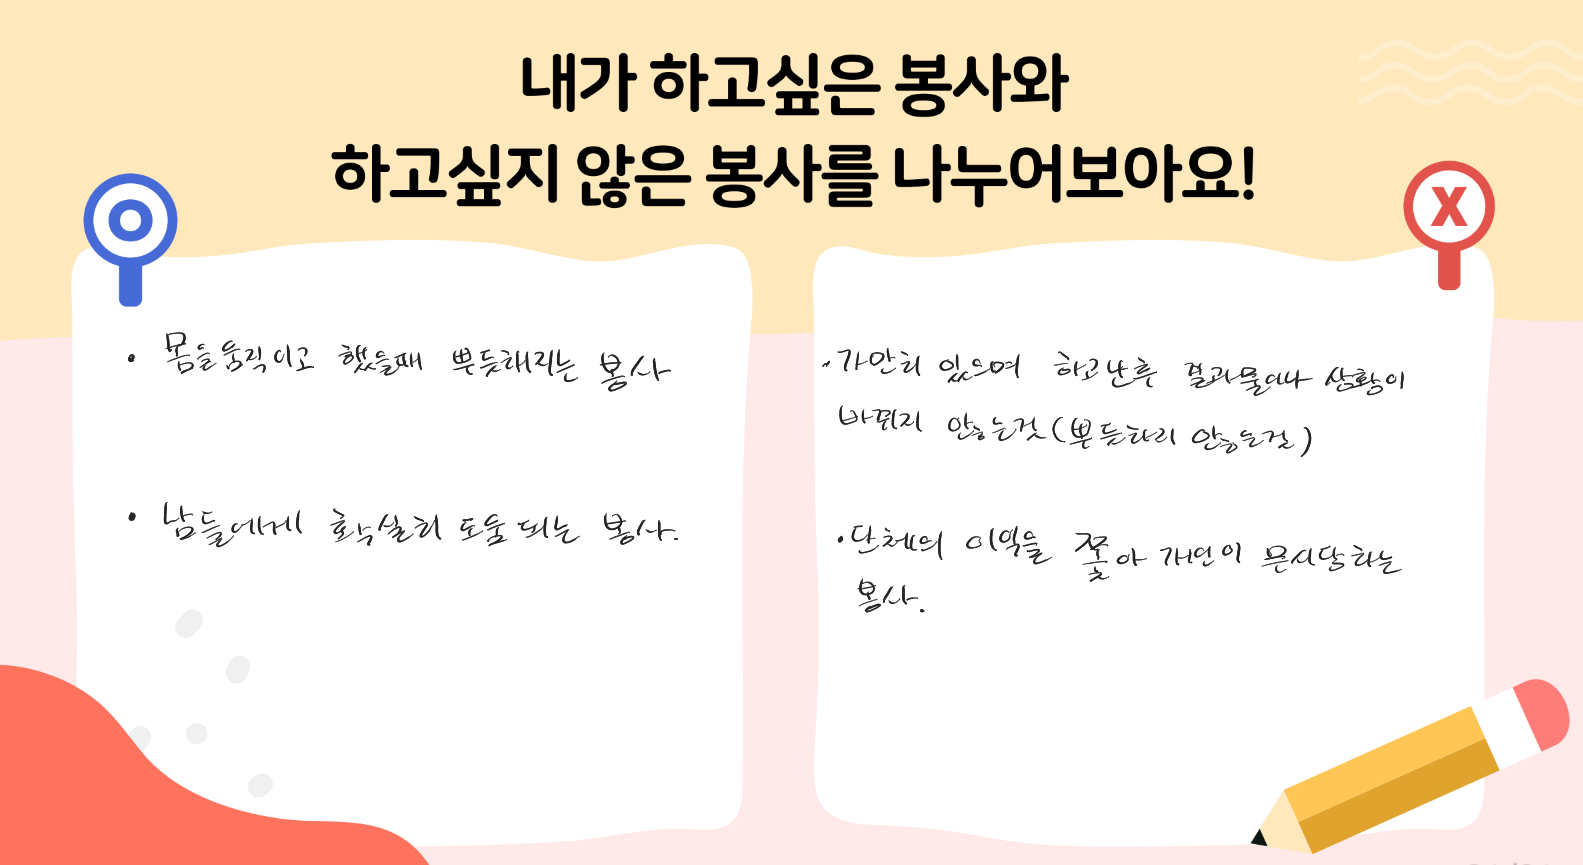 내가 하고싶은 봉사와
하고싶지 않은 봉사를 나누어보아요!
X
• 몸을움직이고 했을때 뿌듯해지는 봉사
• 남들에게 확실히 도움 되는 봉사.
• 가만히 있으며 하고난후 결과물이나 상황이
바뀌지 안하는것(뿌듯하지 안하는것)
• 단체의 이익을 쫓아 개인이 묵시당하는
봉사.